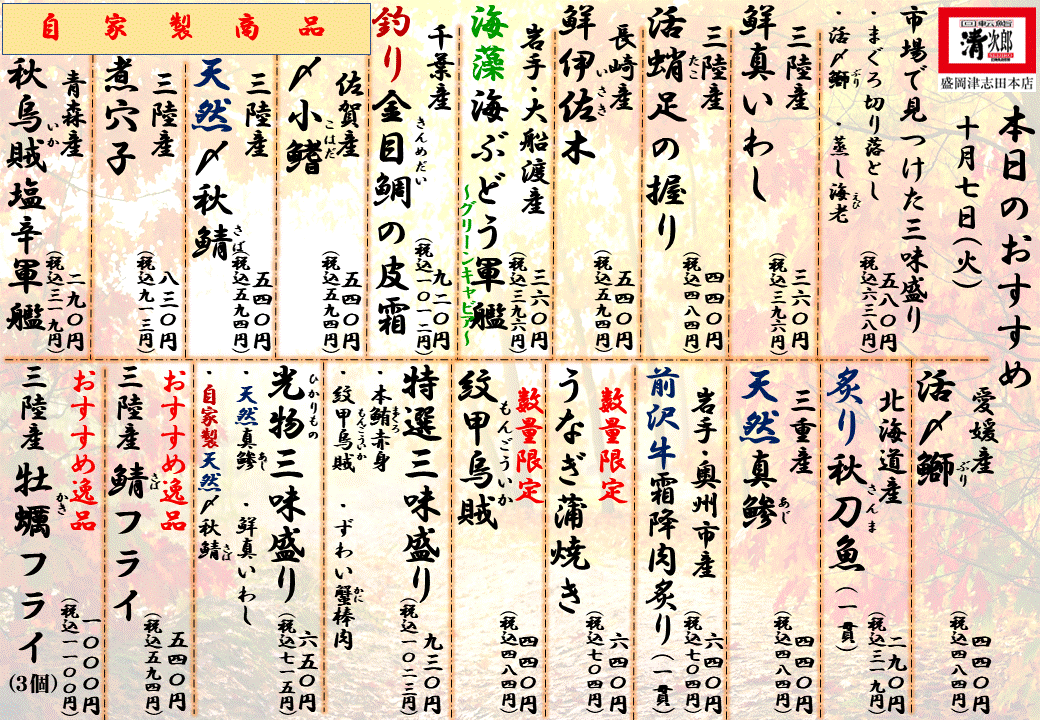 回転鮨
清次郎
盛岡津志田本店
本日のおすすめ
十月七日(火)
市場で見つけた三味盛り
・まぐろ切り落とし
・活〆鰤 ・蒸し海老
ぶり
えび
五八〇円
(税込六三八円)
三陸産
鮮真いわし
三六〇円
(税込三九六円)
三陸産
活蛸足の握り
たこ
四四〇円
(税込四八四円)
長崎産
鮮伊佐木
いさき
五四〇円
(税込五九四円)
岩手・大船渡産
海藻海ぶどう軍艦
~グリーンキャビア~
三六〇円
(税込三九六円)
千葉産
釣り金目鯛の皮霜
きんめだい
九二〇円
(税込一〇一二円)
自家製商品
佐賀産
〆小鰭
こはだ
五四〇円
(税込五九四円)
三陸産
天然〆秋鯖
さば
五四〇円
(税込五九四円)
三陸産
煮穴子
八三〇円
(税込九一三円)
青森産
秋烏賊塩辛軍艦
いか
二九〇円
(税込三一九円)
愛媛産
活〆鰤
ぶり
四四〇円
(税込四八四円)
北海道産
炙り秋刀魚(一貫)
さんま
二九〇円
(税込三一九円)
三重産
天然真鯵
あじ
四四〇円
(税込四八四円)
岩手・奥州市産
前沢牛霜降肉炙り(一貫)
六四〇円
(税込七〇四円)
数量限定
うなぎ蒲焼き
六四〇円
(税込七〇四円)
数量限定
紋甲烏賊
もんごういか
四四〇円
(税込四八四円)
特選三味盛り
・本鮪赤身
まぐろ
・紋甲烏賊 ・ずわい蟹棒肉
もんごういか
かに
九三〇円
(税込一〇二三円)
光物三味盛り
ひかりもの
・天然真鯵 ・鮮真いわし
あじ
・自家製天然〆秋鯖
さば
六五〇円
(税込七一五円)
おすすめ逸品
三陸産 鯖フライ
さば
五四〇円
(税込五九四円)
おすすめ逸品
三陸産 牡蠣フライ(3個)
かき
一〇〇〇円
(税込一一〇〇円)